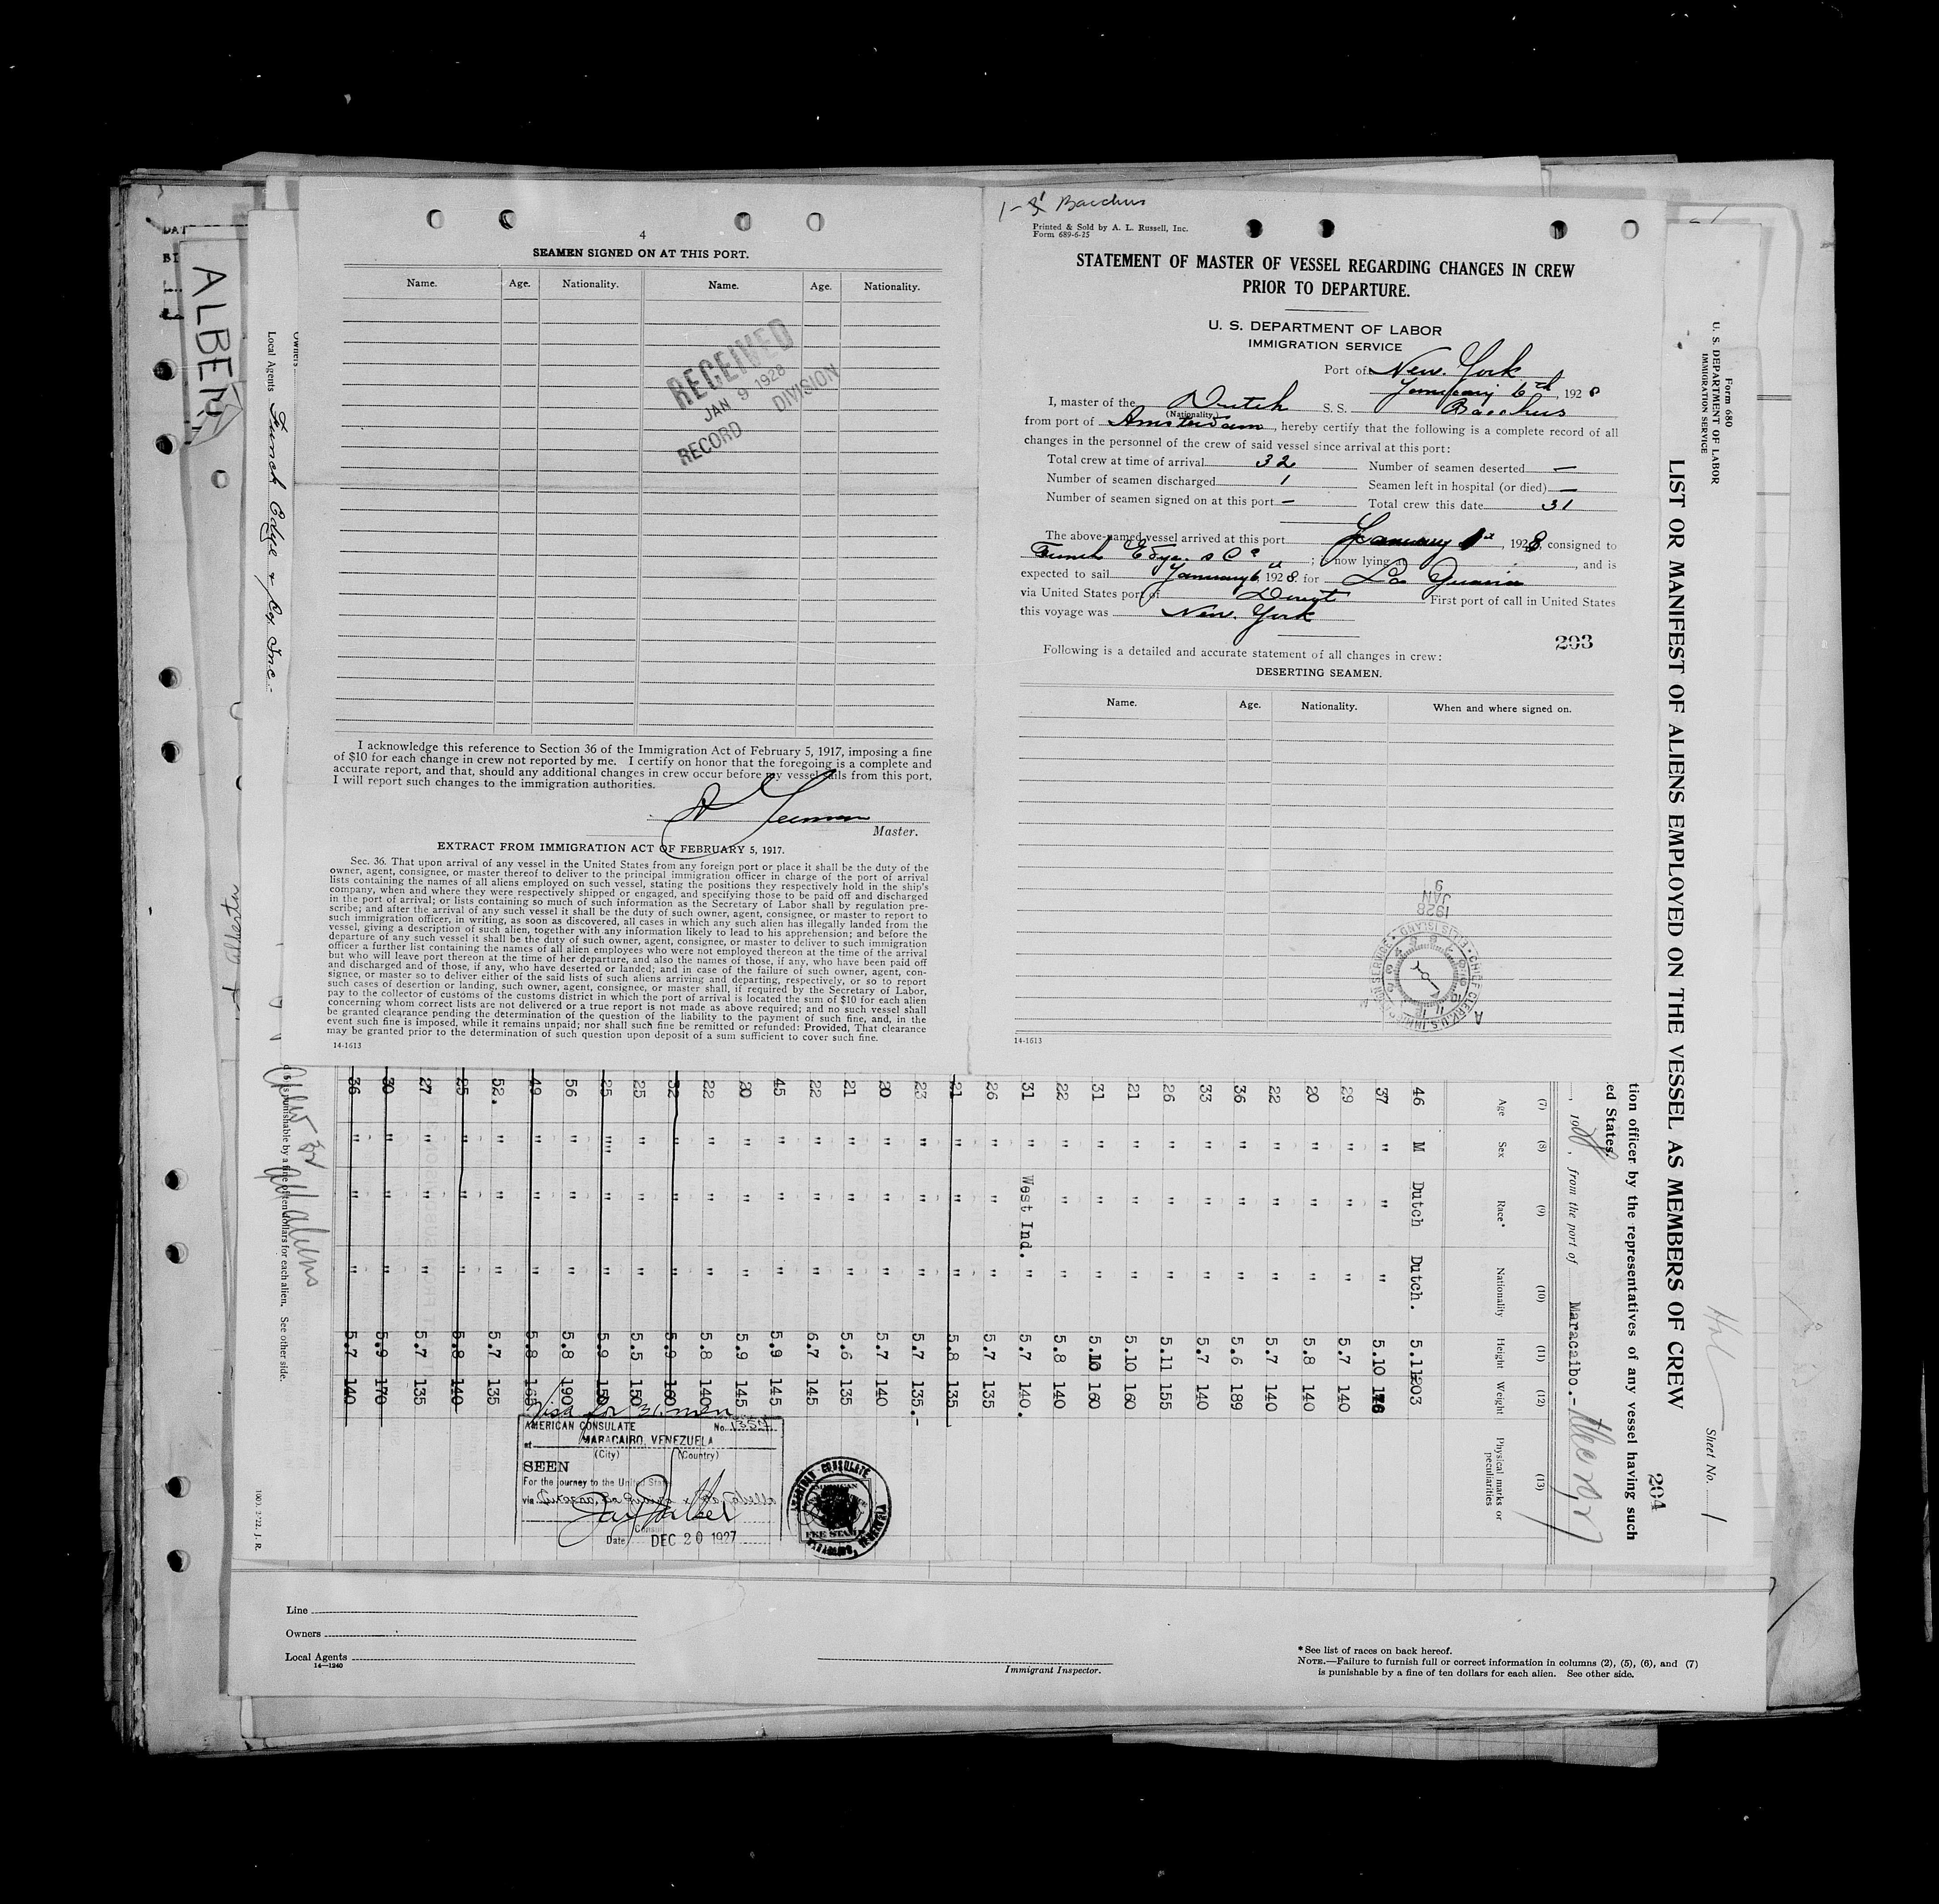 4
SEAMEN SIGNED ON AT THIS PORT.
Name. Age. Nationality. Name. Age. Nationality.
RECEIVED
JAN 9 1928
RECORD DIVISION
I acknowledge this reference to Section 36 of the Immigration Act of February 5, 1917, imposing a fine
of $10 for each change in crew not reported by me. I certify on honor that the foregoing is a complete and
accurate report, and that, should any additional changes in crew occur before my vessel sails from this port,
I will report such changes to the immigration authorities.
Master.
EXTRACT FROM IMMIGRATION ACT OF FEBRUARY 5, 1917.
Sec. 36. That upon arrival of any vessel in the United States from any foreign port or place it shall be the duty of the
owner, agent, consignee, or master thereof to deliver to the principal immigration officer in charge of the port of arrival
lists containing the names of all aliens employed on such vessel, stating the positions they respectively hold in the ship's
company, when and where they were respectively shipped or engaged, and specifying those to be paid off and discharged
in the port of arrival; or lists containing so much of such information as the Secretary of Labor shall by regulation pre-
scribe; and after the arrival of any such vessel it shall be the duty of such owner, agent, consignee, or master to report to
such immigration officer, in writing, as soon as discovered, all cases in which any such alien has illegally landed from the
vessel, giving a description of such alien, together with any information likely to lead to his apprehension; and before the
departure of any such vessel it shall be the duty of such owner, agent, consignee, or master to deliver to such immigration
officer a further list containing the names of all alien employees who were not employed thereon at the time of the arrival
but who will leave port thereon at the time of her departure, and also the names of those, if any, who have been paid off
and discharged and of those, if any, who have deserted or landed; and in case of the failure of such owner, agent, con-
signee, or master so to deliver either of the said lists of such aliens arriving and departing, respectively, or so to report
such cases of desertion or landing, such owner, agent, consignee, or master shall, if required by the Secretary of Labor,
pay to the collector of customs of the customs district in which the port of arrival is located the sum of $10 for each alien
concerning whom correct lists are not delivered or a true report is not made as above required; and no such vessel shall
be granted clearance pending the determination of the question of the liability to the payment of such fine, and, in the
event such fine is imposed, while it remains unpaid; nor shall such fine be remitted or refunded: Provided, That clearance
may be granted prior to the determination of such question upon deposit of a sum sufficient to cover such fine.
14-1613
Bacchus
Printed & Sold by A. L. Russell, Inc.
Form 689-6-25
STATEMENT OF MASTER OF VESSEL REGARDING CHANGES IN CREW
PRIOR TO DEPARTURE.
U. S. DEPARTMENT OF LABOR
IMMIGRATION SERVICE
Port of New York
January 6th, 1928
I, master of the Dutch S. S. Bacchus
(Nationality)
from port of Amsterdam, hereby certify that the following is a complete record of all
changes in the personnel of the crew of said vessel since arrival at this port:
Total crew at time of arrival 32 Number of seamen deserted —
Number of seamen discharged 1 Seamen left in hospital (or died) —
Number of seamen signed on at this port — Total crew this date 31
The above-named vessel arrived at this port January 1st, 1928, consigned to
Funch Edye & Co; is now lying at , and is
expected to sail January 6th 1928 for La Guaira
via United States port of Direct First port of call in United States
this voyage was New York
203
Following is a detailed and accurate statement of all changes in crew:
DESERTING SEAMEN.
Name. Age. Nationality. When and where signed on.
JAN 9
1928
CHIEF CLERK, U.S. IMMIGRATION SERVICE ELLIS ISLAND
14-1613
ALBEN
Owners
Local Agents Funch Edye & Co, Inc.
Form 680
U. S. DEPARTMENT OF LABOR
IMMIGRATION SERVICE
LIST OR MANIFEST OF ALIENS EMPLOYED ON THE VESSEL AS MEMBERS OF CREW
Sheet No. 1
204
tion officer by the representatives of any vessel having such
ed States.
, from the port of Maracaibo.-
(7) (8) (9) (10) (11) (12) (13)
Age Sex Race* Nationality Height Weight Physical marks or peculiarities
46 M Dutch Dutch. 5.11 203
37 " " " 5.10
29 " " " 5.7 140
20 " " " 5.8 140
22 " " " 5.7 140
36 " " " 5.6 189
33 " " " 5.7 140
26 " " " 5.11 155
21 " " " 5.10 160
31 " " " 5.10 160
22 " " " 5.8 140
31 " West Ind. " 5.7 140.
26 " " " 5.7 135
21 " " " 5.8 135
23 " " " 5.7 135.-
20 " " " 5.7 140
21 " " " 5.6 135
22 " " " 6.7 145
45 " " " 5.9 145
20 " " " 5.9 145
22 " " " 5.8 140
32 " " " 5.9 160
25 " " " 5.5 150
25 " " " 5.9 150
56 " " " 5.8 190
49 " " " 5.8 165
52. " " " 5.7 135
25 " " " 5.8 140
27 " " " 5.7 135
30 " " " 5.9 170
36 " " " 5.7 140
is punishable by a fine of ten dollars for each alien. See other side.
Visa for 31 men
AMERICAN CONSULATE No.
at MARACAIBO, VENEZUELA
(City) (Country)
SEEN
For the journey to the United States
via Curacao, La Guaira & Pto Cabello
Consul
Date DEC 20 1927
AMERICAN CONSULATE
FEE STAMP
MARACAIBO, VENEZUELA
Line
Owners
Local Agents
14—1240
Immigrant Inspector.
*See list of races on back hereof.
NOTE.—Failure to furnish full or correct information in columns (2), (5), (6), and (7)
is punishable by a fine of ten dollars for each alien. See other side.